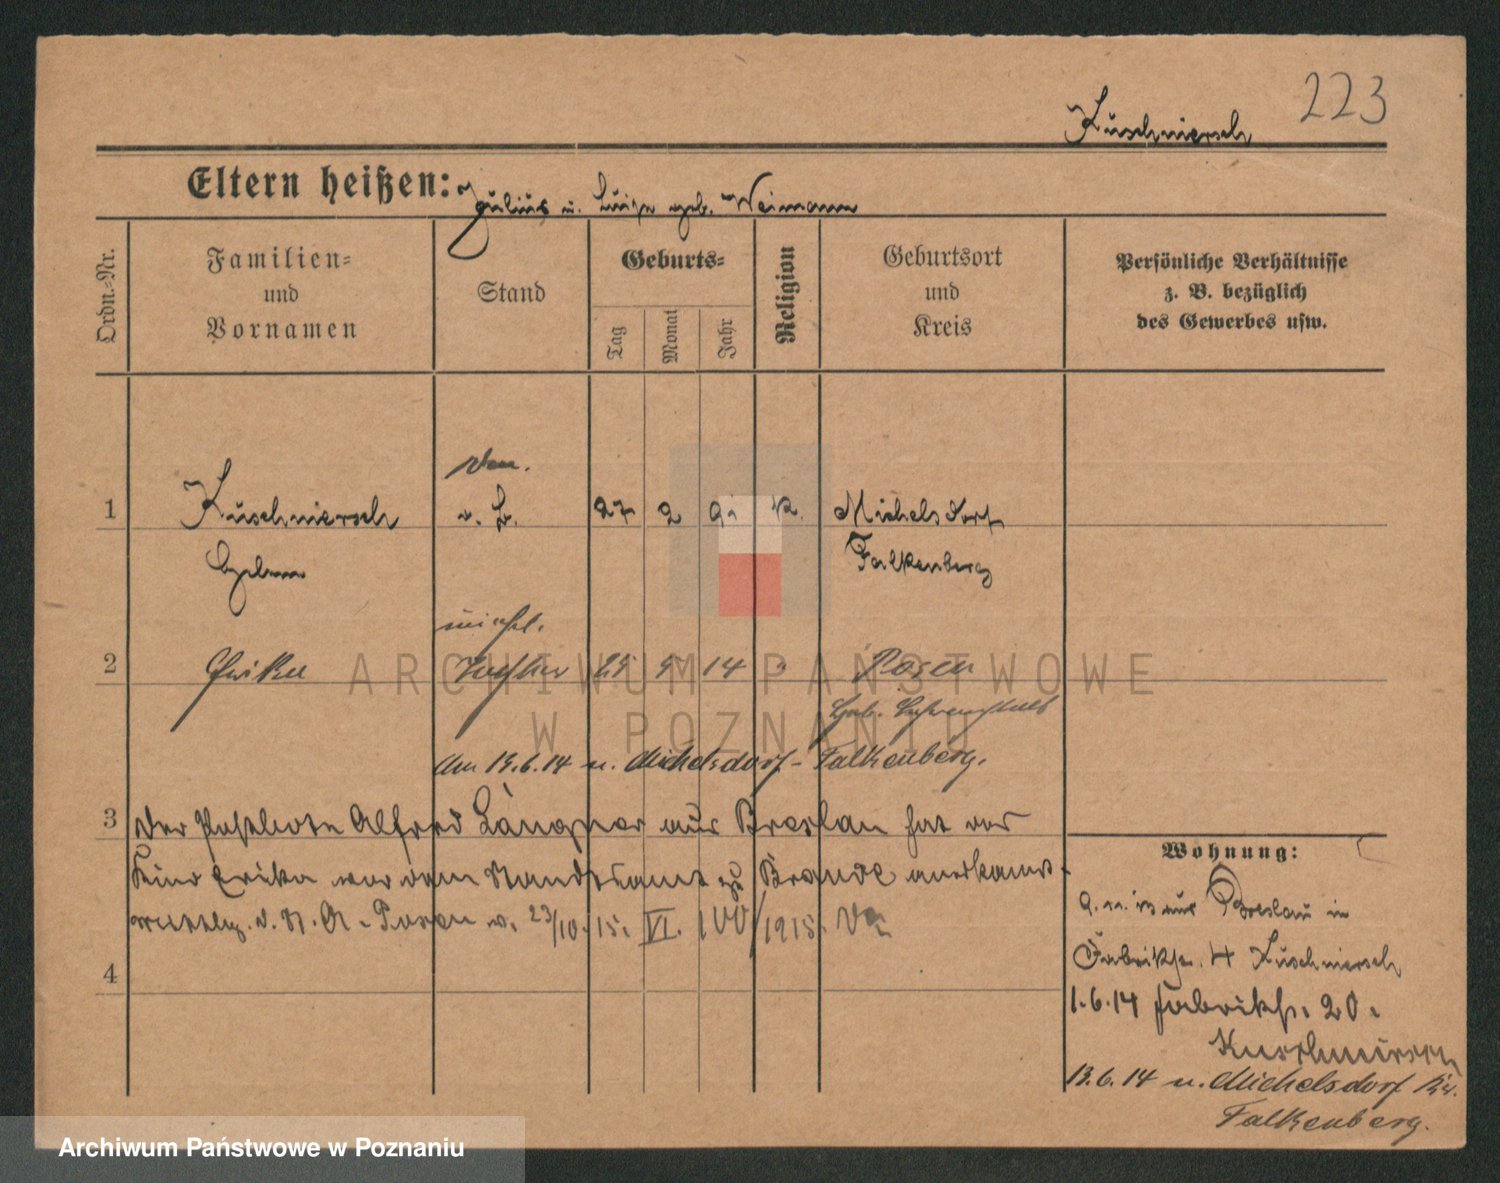 223
Kuschmiersch
Eltern heißen: Julius u. Luise geb. Weimann
Ordn.-Nr.
Familien-
und
Vornamen
Stand
Geburts-
Tag
Monat
Jahr
Religion
Geburtsort
und
Kreis
Persönliche Verhältnisse
z. B. bezüglich
des Gewerbes usw.
1
Kuschmiersch
o. B.
27
2
K.
Michelsdorf
Falkenberg
2
Erika
Tochter
25
14
"
Posen
Am 13.6.14 n. Michelsdorf - Falkenberg.
3
Der Postbote Alfred Längner aus Breslau hat das
Kind Erika vor dem Standesamt zu Brande anerkannt.
d. St. A. Posen v. 23/10. 15. VI. 100/1915.
4
Wohnung:
13 aus Breslau in
Fabrikstr. 4 Kuschmiersch
1.6.14 Fabrikstr. 20.
Kuschmiersch
13.6.14 n. Michelsdorf Kr.
Falkenberg.
ARCHIWUM PAŃSTWOWE
W POZNANIU
Archiwum Państwowe w Poznaniu